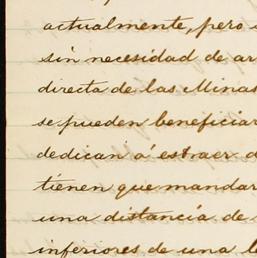 actualmente, pero
sin necesidad de ar
directa de las Minas
se pueden beneficiar
dedican á estraer
tienen que mandar
una distancia de
inferiores de una l